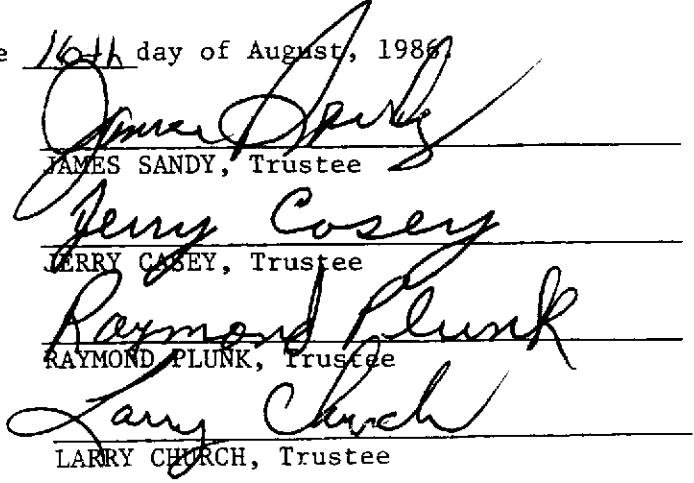 e 16th day of August, 1986.
James Sandy
JAMES SANDY, Trustee
Jerry Casey
JERRY CASEY, Trustee
Raymond Plunk
RAYMOND PLUNK, Trustee
Larry Church
LARRY CHURCH, Trustee